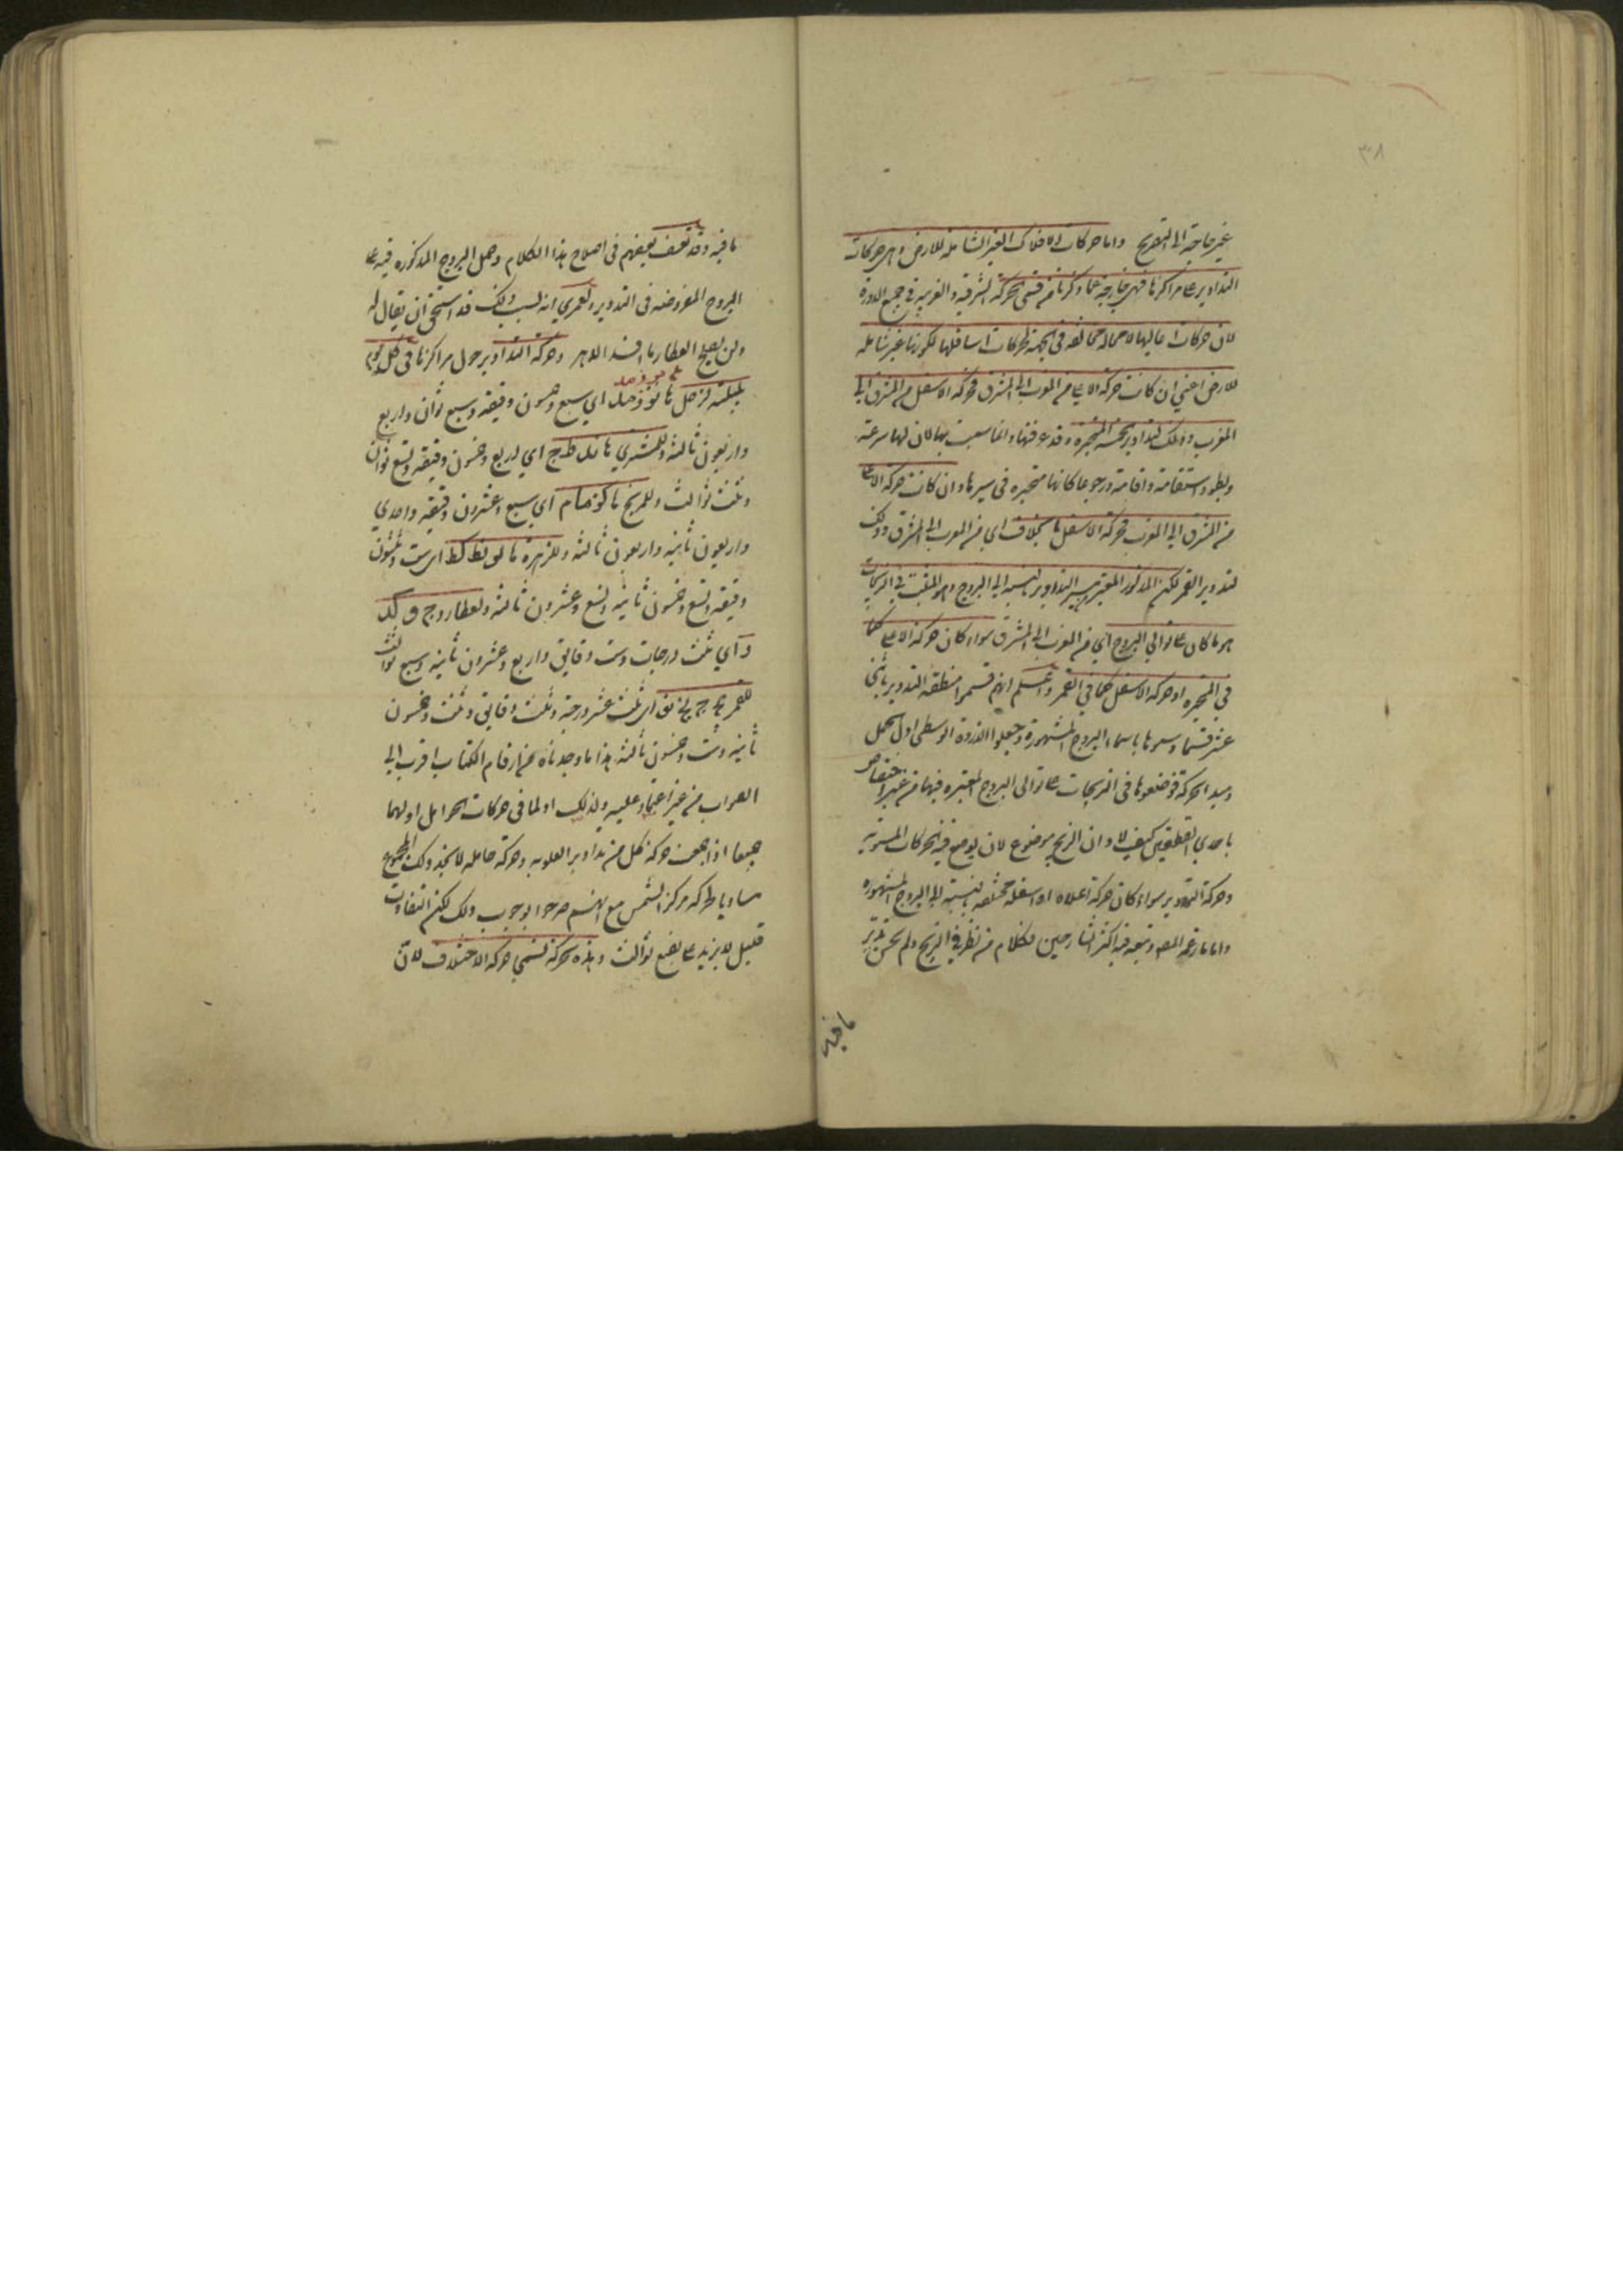 ٣٨
غير حاجة الى التصريح واما حركات الافلاك الغير الشاملة للارض وهي حركات
التداوير على مراكزها فهي خارجة عما ذكرنا من قسمي الحركة الشرقية والغربية في جميع الدورة
لان حركات اعاليها لا محالة مخالفة في الجهة لحركات اسافلها لكونها غير شاملة
للارض اعني ان كانت حركة الاعلى من المغرب الى المشرق فحركة الاسفل من المشرق الى
المغرب وذلك لتداوير الخمسة المتحيرة وقد عرفتها وانما سميت بها لان لها سرعة
وبطؤ واستقامة واقامة ورجوعا كانها متحيرة في سيرها وان كانت حركة الاعلى
من المشرق الى المغرب فحركة الاسفل بخلافه اي من المغرب الى المشرق وذلك
لتدوير القمر لكن المذكور المعتبر التداوير بالنسبة الى البروج وهو المثبت في الزيجات
هو ما كان على توالي البروج اي من المغرب الى المشرق سواء كان حركة الاعلى كما
في المتحيرة او حركة الاسفل كما في القمر واعلم انهم قسموا منطقة التدوير باثني
عشر قسما وسموها باسماء البروج المشهورة وجعلوا الذروة الوسطى اول الحمل
ومبدا الحركة فوضعوها في الزيجات على توالي البروج المعتبرة فيها من غير اختصاص
باحدي القطعتين كيف لا وان الزيج موضوع لان يوضع فيه الحركات المستوية
وحركة التدوير سواء كان حركة اعلاه او اسفله مختلفة بالنسبة الى البروج المشهورة
واما ما زعمه المص وتبعه فيه اكثر الشارحين فكلام من نظر في الزيج ولم يحسن تدبر
ما فيه
ما فيه وقد تعسف بعضهم في اصلاح هذا الكلام وحمل البروج المذكورة فيه على
البروج المفروضة في التدوير ولعمري انه ليس بذلك قد استحق ان يقال له
ولن يصلح العطار ما افسد الدهر وحركة التداوير حول مراكزها في كل يوم
بليلته لزحل ها نو ز مد اي سبع وخمسون دقيقة وسبع ثوان واربع
واربعون ثالثة وللمشتري ها ند ط ج اي اربع وخمسون دقيقة وتسع ثوان
وثلث ثوالث وللمريخ ها كز ما م اي سبع وعشرون دقيقة واحدي
واربعون ثانية واربعون ثالثة وللزهرة ها لو نط كط اي ست وثلثون
دقيقة وتسع وخمسون ثانية وتسع وعشرون ثالثة ولعطارد ج و كد
ز اي ثلث درجات وست دقايق واربع وعشرون ثانية وسبع ثوالث
للقمر يج ج نج نو اي ثلث عشر درجة وثلث دقايق وثلث وخمسون
ثانية وست وخمسون ثالثة هذا ما وجدناه من ارقام الكتاب اقرب الى
الصواب من غير اعتماد عليه ولذلك اولما في حركات الحوامل اولهما
جميعا اذا جمعت حركة كل من تداوير العلوية وحركة حامله لا تجد ذلك المجموع
مساويا لحركة مركز الشمس مع انهم صرحوا بوجوب ذلك لكن التفاوت
قليل لا يزيد على بضع ثوالث وهذه الحركة تسمى حركة الاختلاف لان